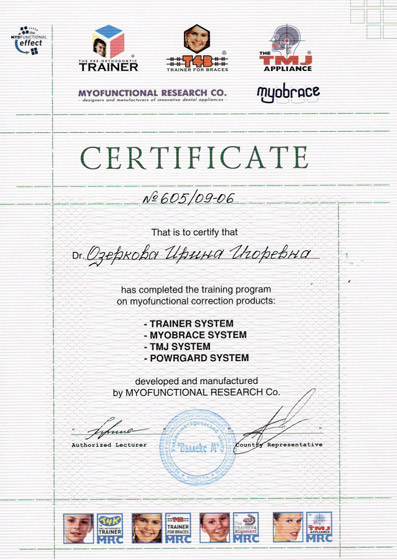 MYOFUNCTIONAL
effect
THE PRE-ORTHODONTIC
TRAINER®
T4B®
TRAINER FOR BRACES
THE
TMJ
APPLIANCE
MYOFUNCTIONAL RESEARCH CO.
- designers and manufacturers of innovative dental appliances -
myobrace
CERTIFICATE
№ 605/09-06
That is to certify that
Dr. Озеркова Ирина Игоревна
has completed the training program
on myofunctional correction products:
- TRAINER SYSTEM
- MYOBRACE SYSTEM
- TMJ SYSTEM
- POWRGARD SYSTEM
developed and manufactured
by MYOFUNCTIONAL RESEARCH Co.
Authorized Lecturer
Country Representative
"Валлекс М"
MRC
T4B
TRAINER
FOR BRACES
MRC
MRC
TMJ
MRC